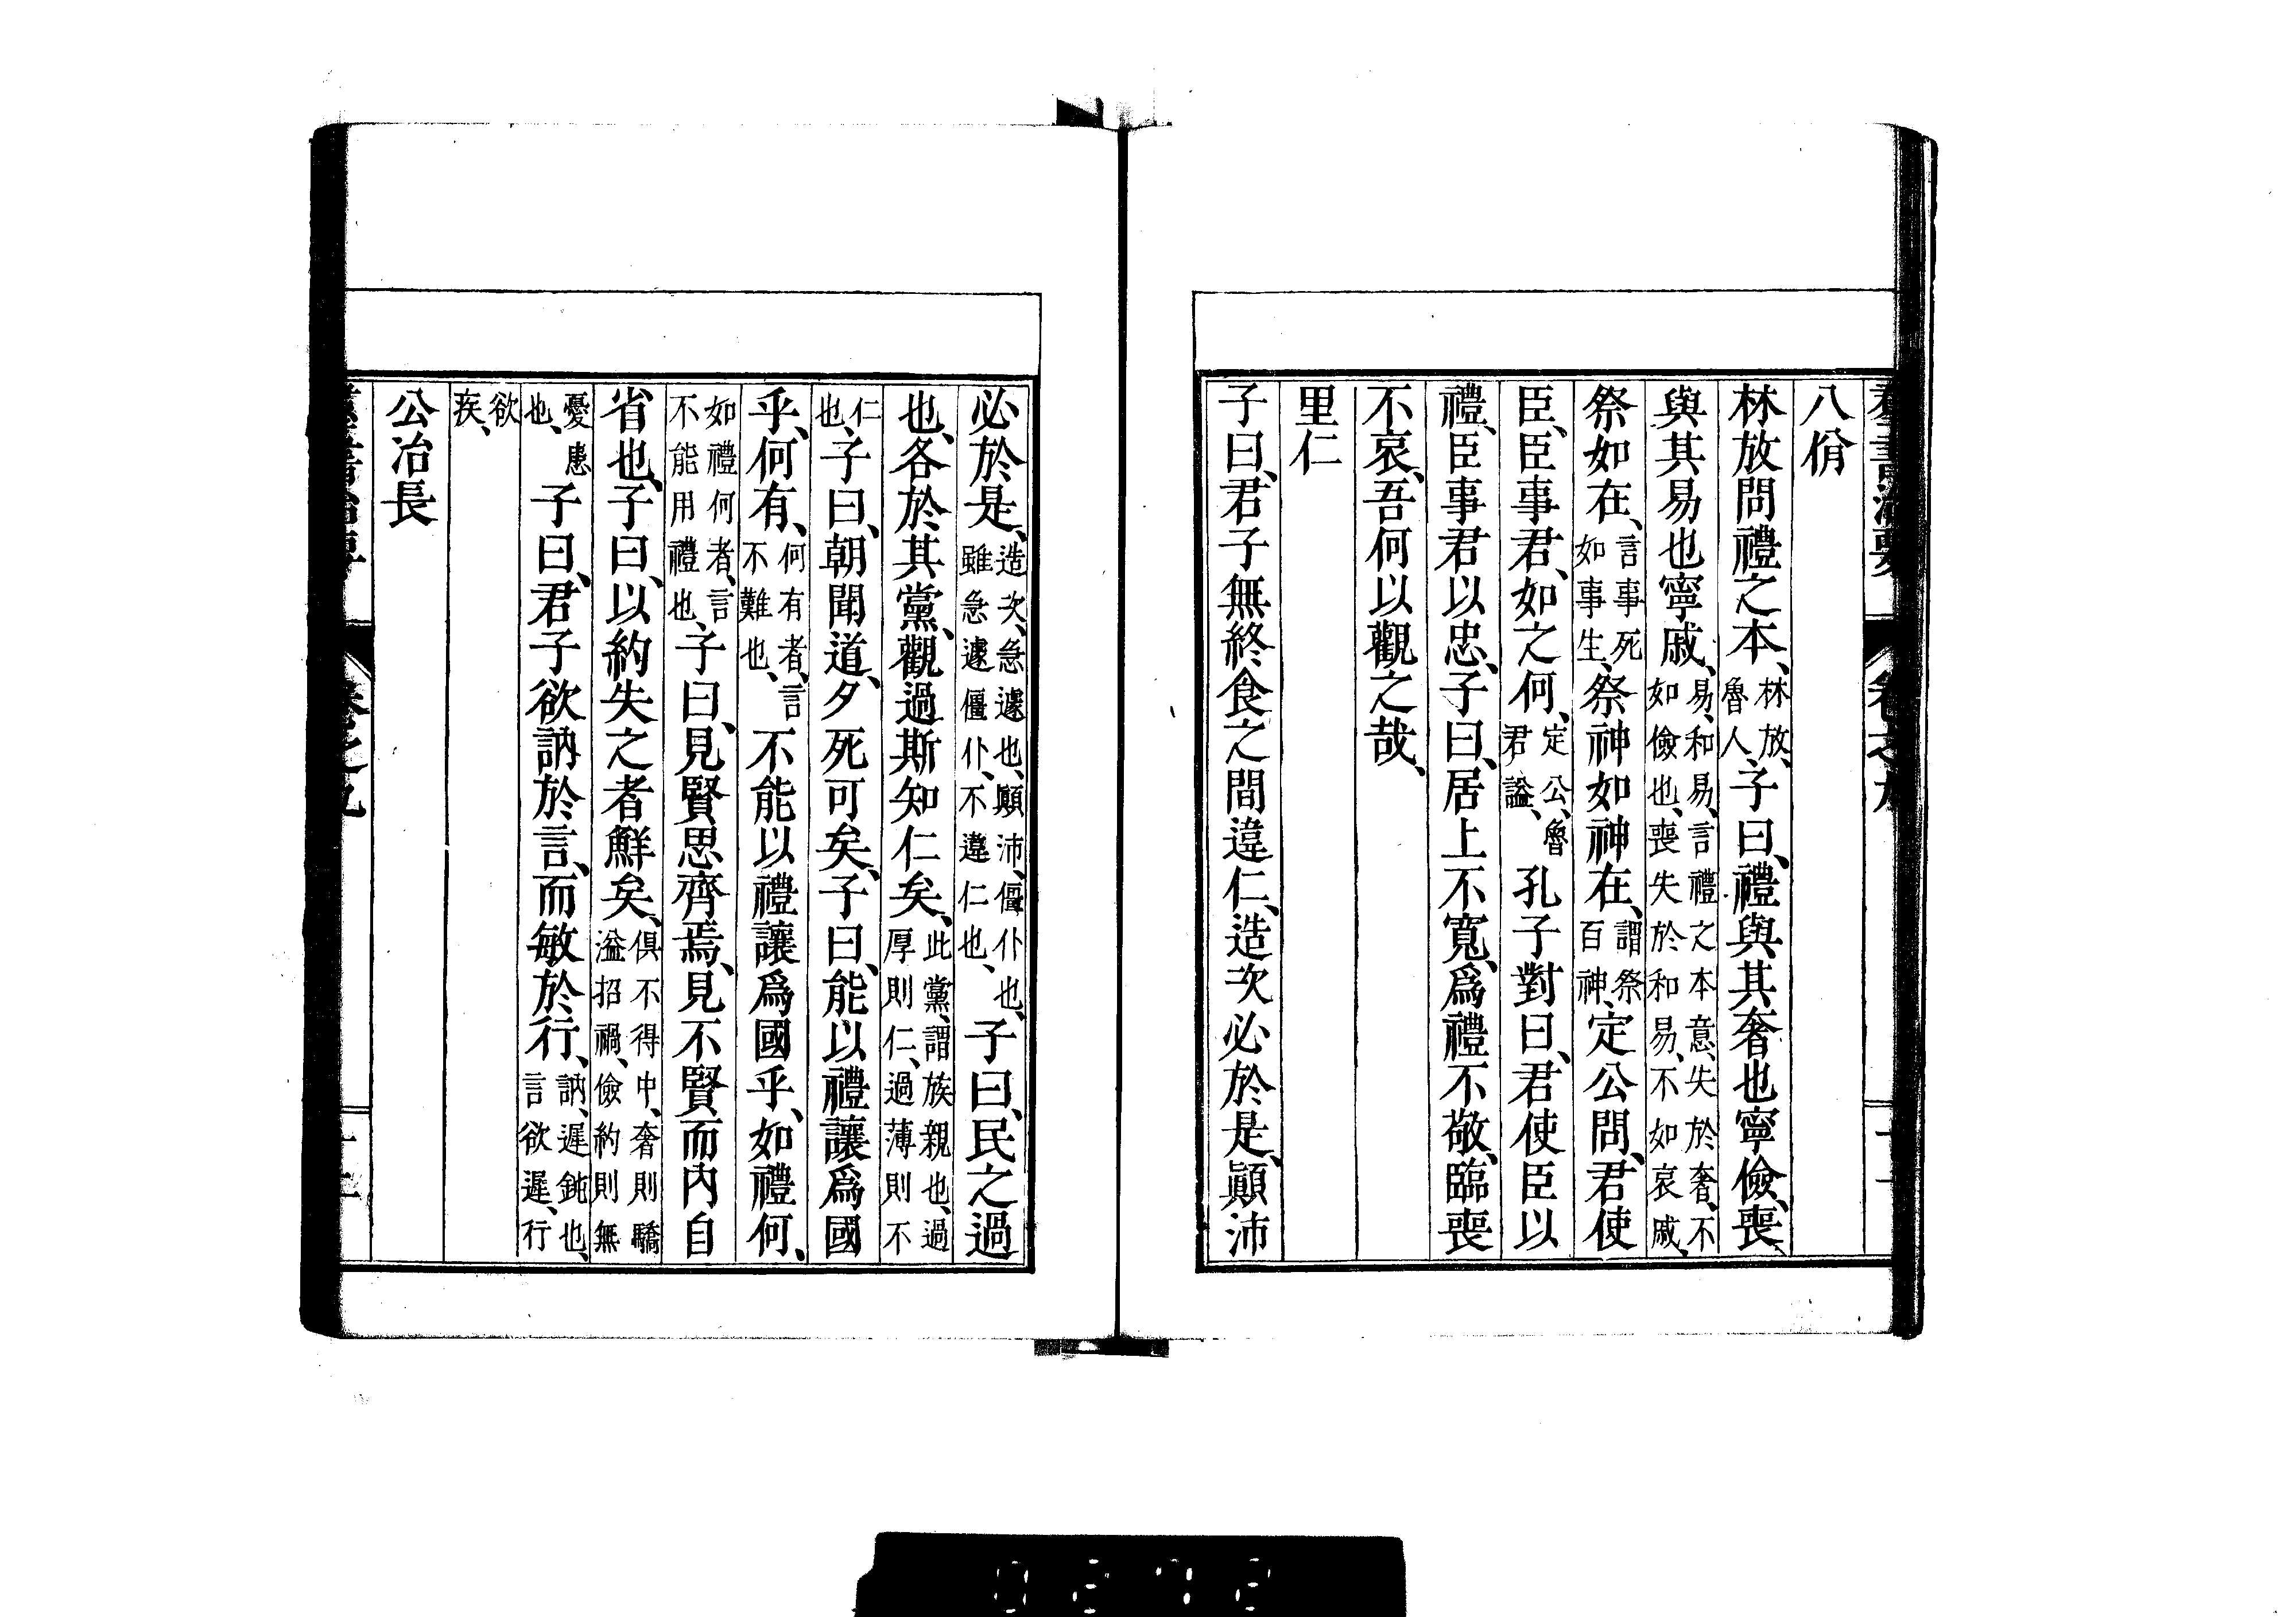 八佾
林放問禮之本、林放、魯人、子曰、禮與其奢也寧儉、喪、
與其易也寧戚、易、和易、言禮之本意、失於奢、不如儉也、喪失於和易、不如哀戚、
祭如在、言事死如事生、祭神如神在、謂祭百神、定公問、君使
臣、臣事君、如之何、定公、魯君謚、孔子對曰、君使臣以
禮、臣事君以忠、子曰、居上不寬、爲禮不敬、臨喪
不哀、吾何以觀之哉、
里仁
子曰、君子無終食之間違仁、造次必於是、顚沛
必於是、造次、急遽也、顚沛、僵仆也、雖急遽僵仆、不違仁也、子曰、民之過
也、各於其黨、觀過斯知仁矣、此黨、謂族親也、過厚則仁、過薄則不
仁也、子曰、朝聞道、夕死可矣、子曰、能以禮讓爲國
乎、何有、何有者、言不難也、不能以禮讓爲國乎、如禮何、
如禮何者、言不能用禮也、子曰、見賢思齊焉、見不賢而內自
省也、子曰、以約失之者鮮矣、俱不得中、奢則驕溢招禍、儉約則無
憂患也、子曰、君子欲訥於言、而敏於行、訥、遲鈍也、言欲遲、行
欲疾、
公冶長
卷之九